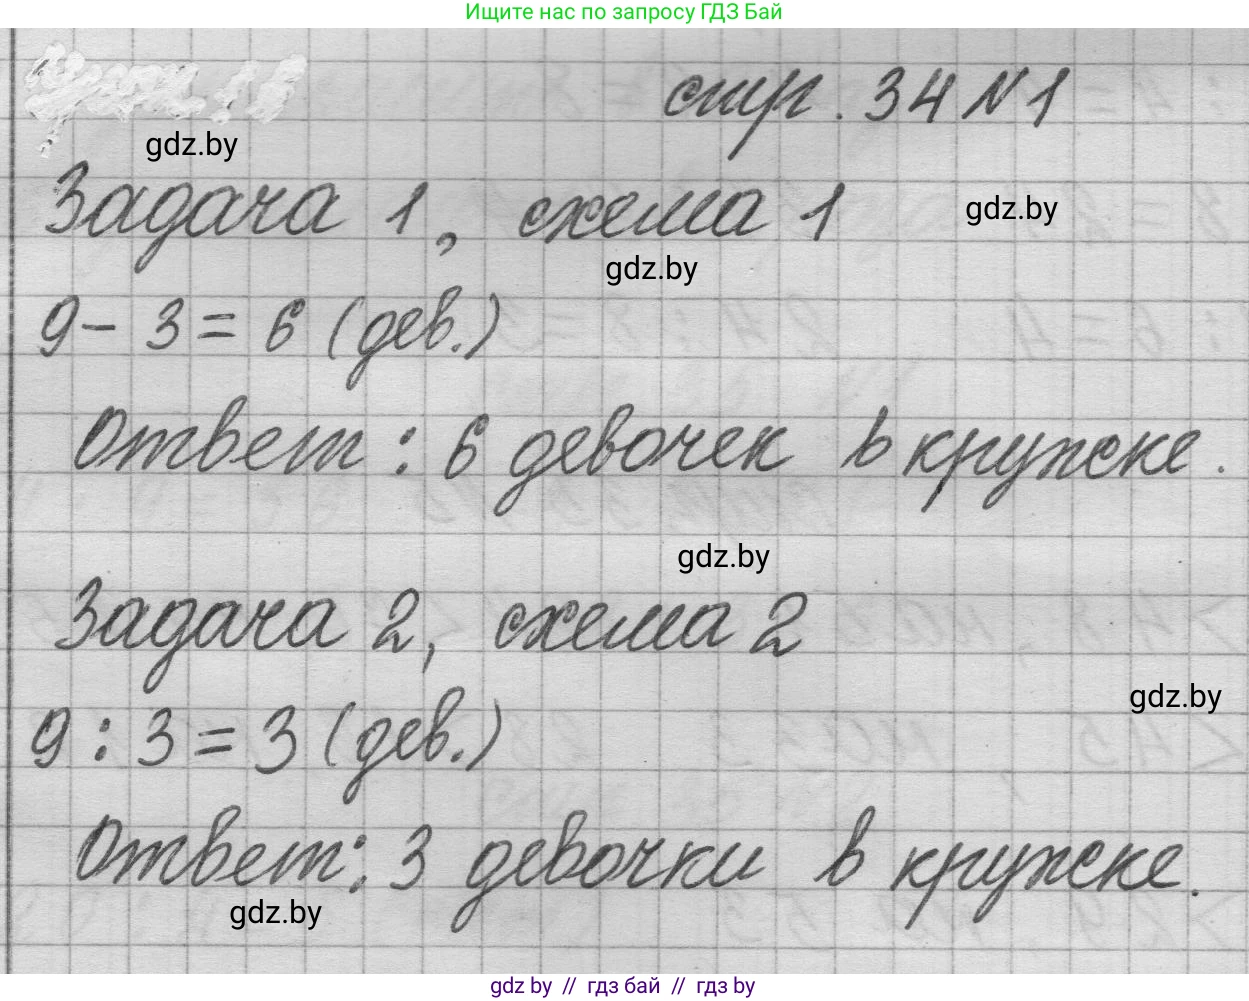 Ищите нас по запросу ГДЗ Бай
стр. 34 №1
gdz.by
Задача 1, схема 1
gdz.by
gdz.by
9 - 3 = 6 (дев.)
Ответ: 6 девочек в кружке.
gdz.by
Задача 2, схема 2
gdz.by
9 : 3 = 3 (дев.)
Ответ: 3 девочки в кружке.
gdz.by
gdz.by // гдз бай // gdz.by